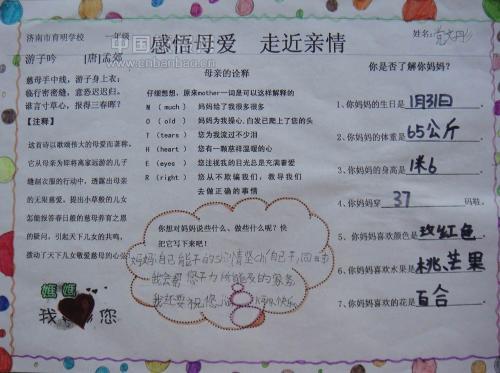 济南市育明学校
年级
感悟母爱 走近亲情
姓名:
中国
www.cnbanbao.cn
游子吟 [唐]孟郊
慈母手中线，游子身上衣；
临行密密缝，意恐迟迟归。
谁言寸草心，报得三春晖？
【注释】
这首诗以歌颂伟大的母爱而著称。
它从母亲为即将离家远游的儿子
缝制衣服的行动中，透露出母亲
的无限慈爱。提出小草般的儿女
怎能报答春日般的慈母养育之恩
的疑问，引起天下儿女的共鸣，
拨动了天下儿女敬爱慈母的心弦
妈妈
我 您
母亲的诠释
仔细想想，原来mother一词是可以这样解释的
M (much) 妈妈给了我很多很多
O (old) 妈妈为我操心，白发已爬上了您的头
T (tears) 您为我流过不少泪
H (heart) 您有一颗慈祥温暖的心
E (eyes) 您注视我的目光总是充满着爱
R (right) 您从不欺骗我们，教导我们
去做正确的事情
你想对妈妈说些什么、做些什么呢？快
把它写下来吧！
妈妈,自己能干的
我会帮您干力所能及的家务
我还要祝您 快乐
你是否了解你妈妈？
1、你妈妈的生日是 1月31日
2、你妈妈的体重是 65公斤
3、你妈妈的身高是 1米6
4、你妈妈穿 37 码鞋。
5、你妈妈喜欢颜色是 玫红色
6、你妈妈喜欢水果是 桃、芒果
7、你妈妈喜欢的花是 百合